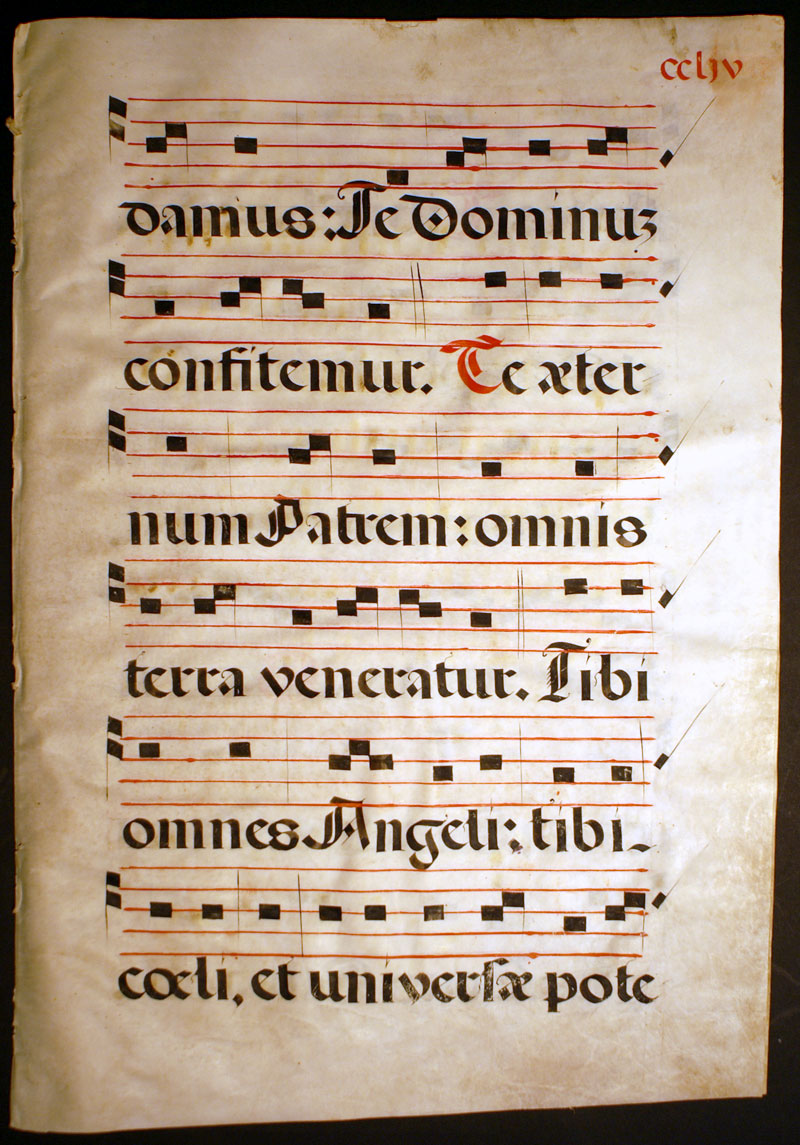 ccljv
damus: Te Dominuz
confitemur. Te æter
num Patrem: omnis
terra veneratur. Tibi
omnes Angeli: tibi
cœli, et universæ pote